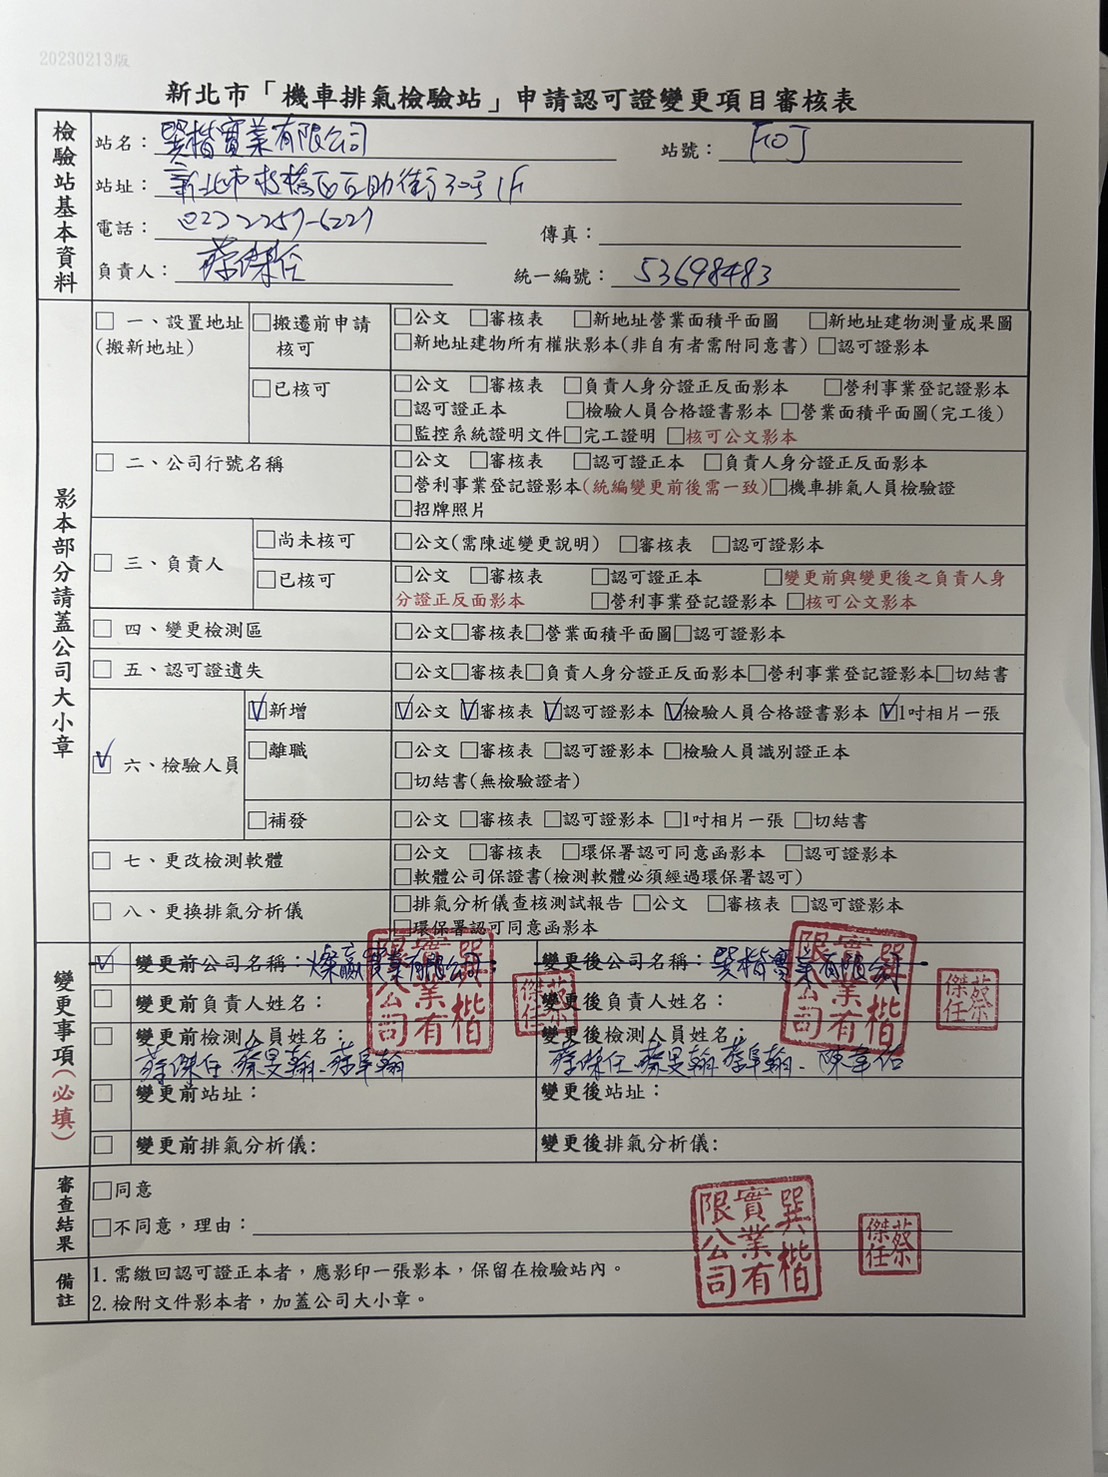 20230213版
新北市「機車排氣檢驗站」申請認可證變更項目審核表
檢驗站基本資料
站名：巽楷實業有限公司 站號：F0J
站址：新北市板橋區互助街30號1F
電話：(02)2257-6227 傳真：
負責人：蔡傑任 統一編號：53698483
影本部分請蓋公司大小章
□一、設置地址(搬新地址)
□搬遷前申請核可
□公文 □審核表 □新地址營業面積平面圖 □新地址建物測量成果圖
□新地址建物所有權狀影本(非自有者需附同意書) □認可證影本
□已核可
□公文 □審核表 □負責人身分證正反面影本 □營利事業登記證影本
□認可證正本 □檢驗人員合格證書影本 □營業面積平面圖(完工後)
□監控系統證明文件□完工證明 □核可公文影本
□二、公司行號名稱
□公文 □審核表 □認可證正本 □負責人身分證正反面影本
□營利事業登記證影本(統編變更前後需一致)□機車排氣人員檢驗證
□招牌照片
□三、負責人
□尚未核可 □公文(需陳述變更說明) □審核表 □認可證影本
□已核可 □公文 □審核表 □認可證正本 □變更前與變更後之負責人身
分證正反面影本 □營利事業登記證影本 □核可公文影本
□四、變更檢測區 □公文□審核表□營業面積平面圖□認可證影本
□五、認可證遺失 □公文□審核表□負責人身分證正反面影本□營利事業登記證影本□切結書
☑六、檢驗人員
☑新增 ☑公文 ☑審核表 ☑認可證影本 ☑檢驗人員合格證書影本 ☑1吋相片一張
□離職 □公文 □審核表 □認可證影本 □檢驗人員識別證正本
□切結書(無檢驗證者)
□補發 □公文 □審核表 □認可證影本 □1吋相片一張 □切結書
□七、更改檢測軟體 □公文 □審核表 □環保署認可同意函影本 □認可證影本
□軟體公司保證書(檢測軟體必須經過環保署認可)
□八、更換排氣分析儀 □排氣分析儀查核測試報告 □公文 □審核表 □認可證影本
□環保署認可同意函影本
變更事項(必填)
☑變更前公司名稱：燦贏實業有限公司 變更後公司名稱：巽楷實業有限公司
□變更前負責人姓名： 變更後負責人姓名：
□變更前檢測人員姓名： 變更後檢測人員姓名：
蔡傑任、蔡旻翰、蔡阜翰 蔡傑任、蔡旻翰、蔡阜翰、陳韋佑
□變更前站址： 變更後站址：
□變更前排氣分析儀: 變更後排氣分析儀:
巽楷實業有限公司
蔡傑任
巽楷實業有限公司
蔡傑任
審查結果
□同意
□不同意，理由：
巽楷實業有限公司
蔡傑任
備註
1. 需繳回認可證正本者，應影印一張影本，保留在檢驗站內。
2. 檢附文件影本者，加蓋公司大小章。